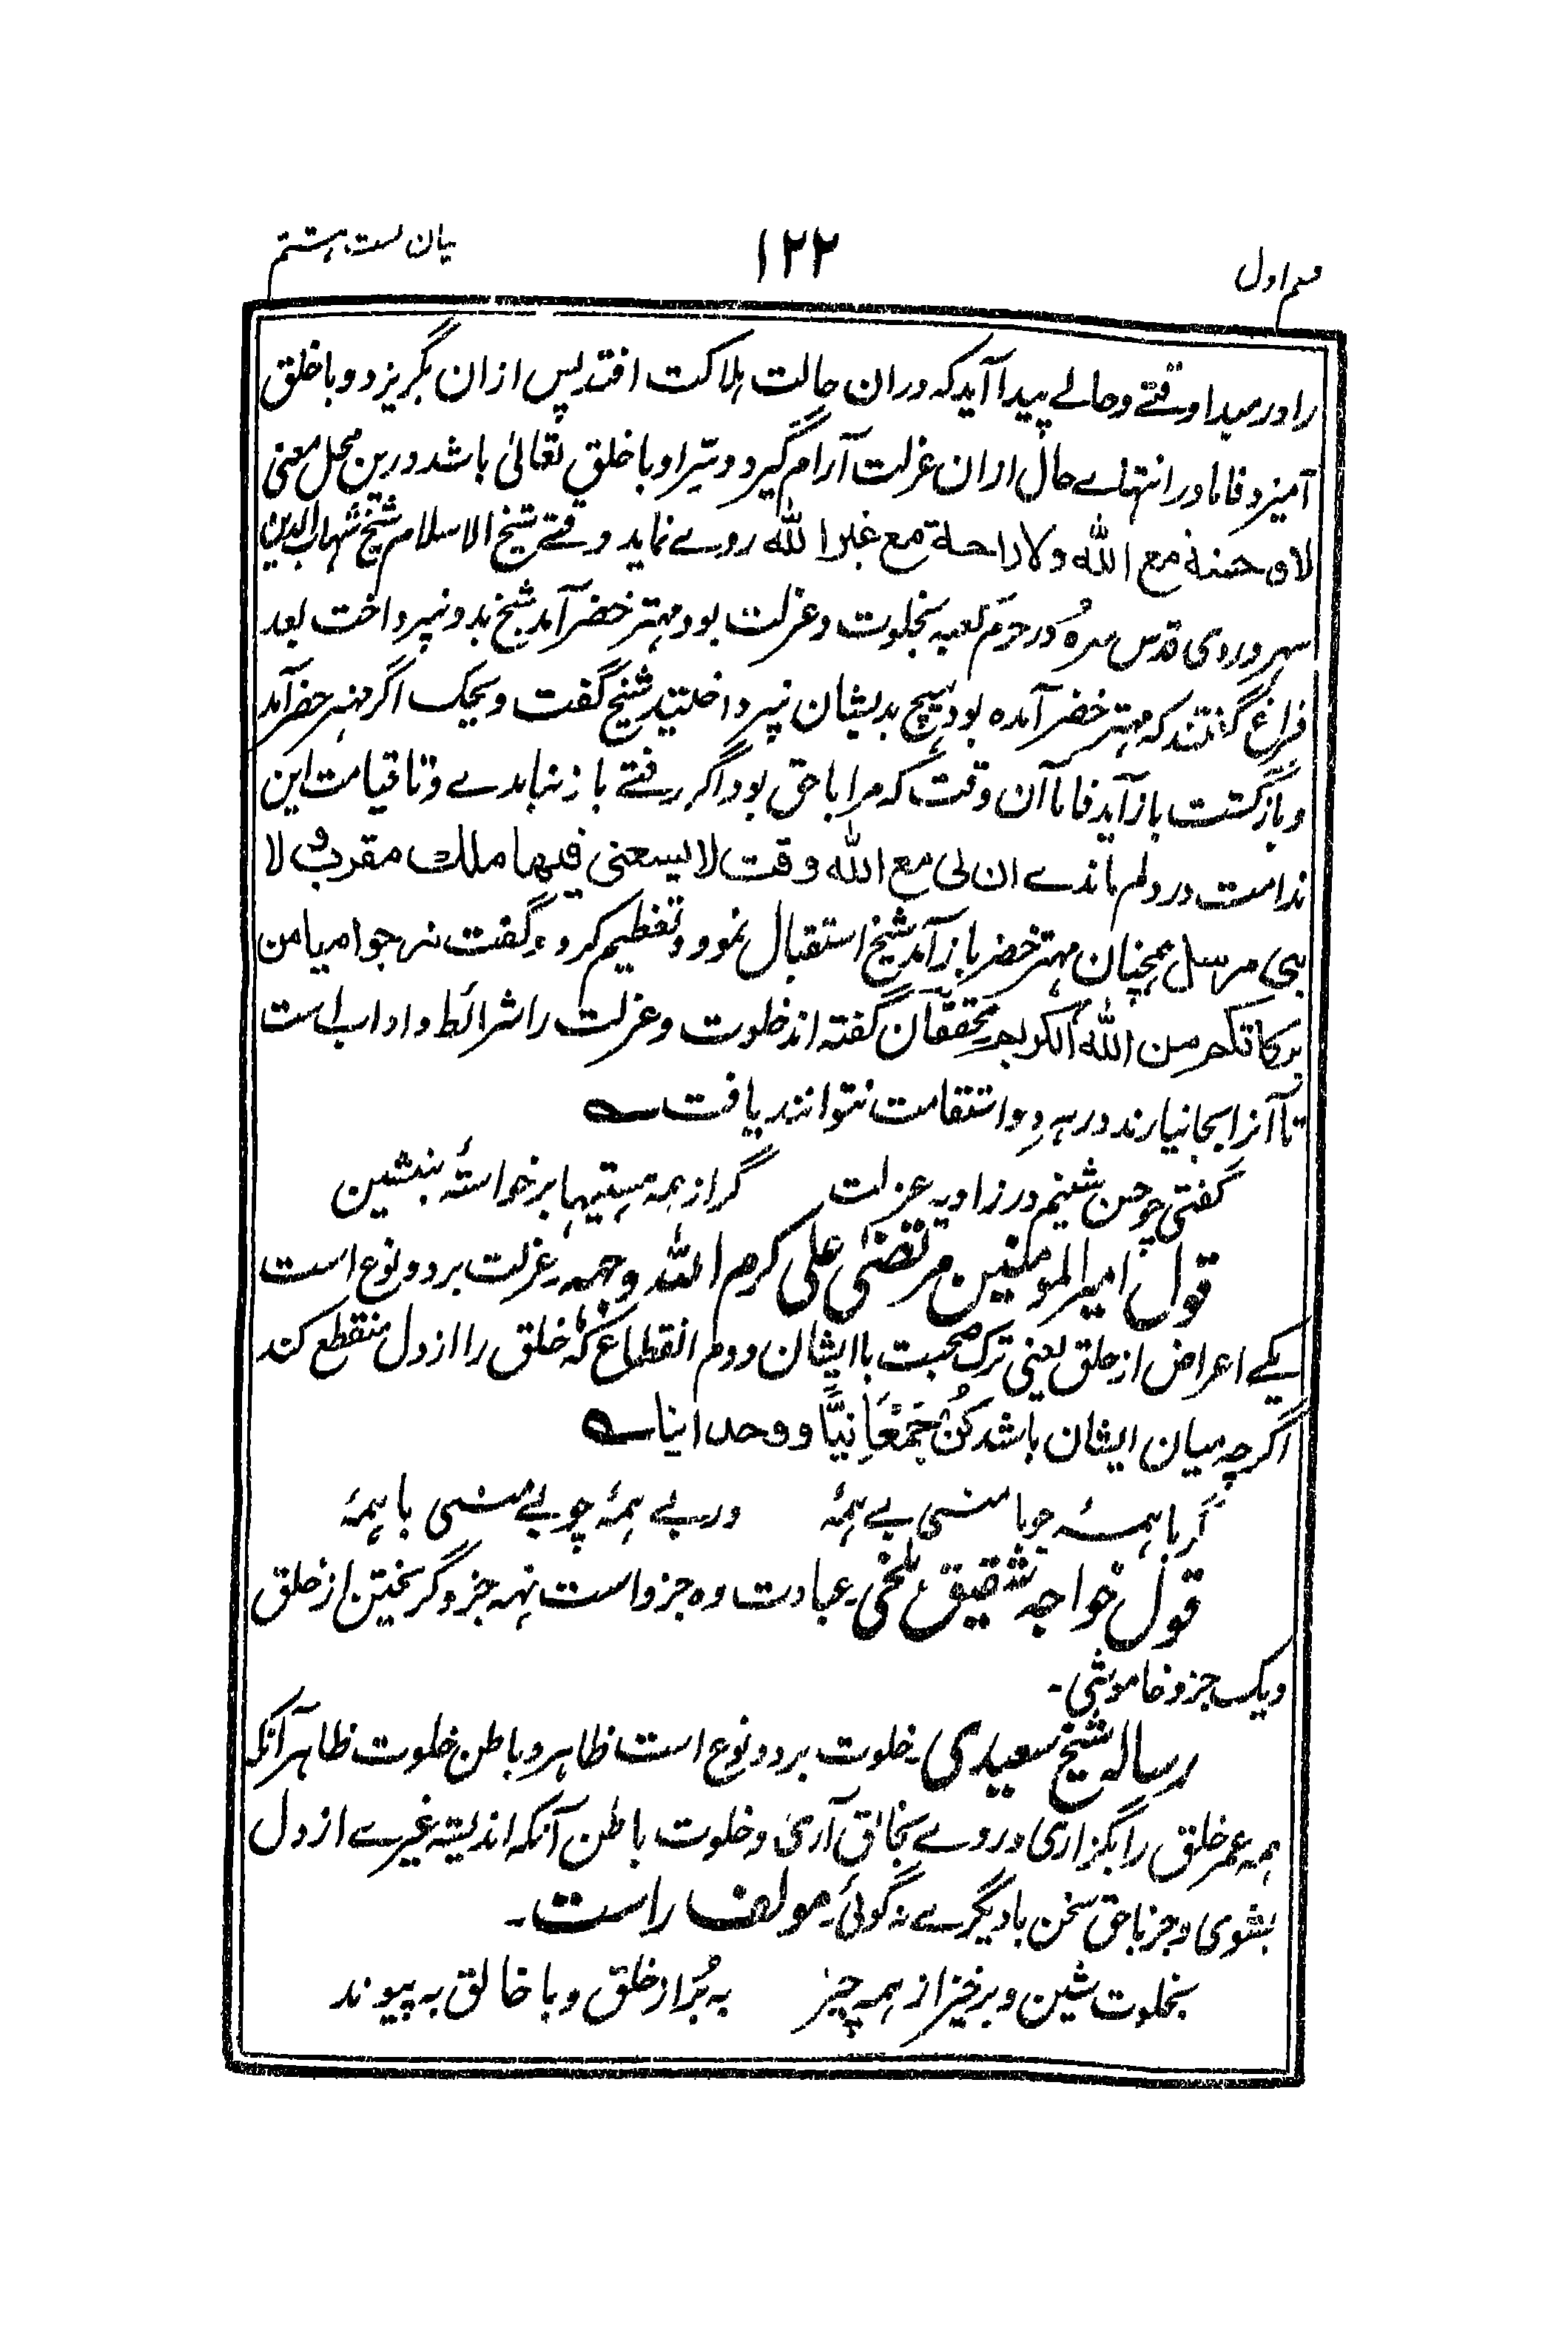 قسم اول
۱۲۲
بیان بست ہشتم
را در مبدا وقتے و حالے پیدا آید کہ دران حالت ہلاکت افتد پس ازان بگریزد و با خلق
آمیزد فاما در انتہاے حال ازان عزلت آرام گیرد و سیّر او با خلق تعالیٰ باشد درین محل معنی
لا وحشة مع اللہ ولا راحة مع غیر اللہ روے نماید وقتے شیخ الاسلام شیخ شہاب الدین
سہروردی قدس سرہٗ در حرم کعبہ بخلوت و عزلت بود مہتر خضر آمد شیخ بدو نپرداخت بعد
فراغ گفتند کہ مہتر خضر آمدہ بود ہیچ بدیشان نپرداختید شیخ گفت ویحک اگر مہتر خضر آمد
و بازگشت باز آید فاما آن وقت کہ مرا با حق بود اگر رفتے باز نیامدے و تا قیامت این
ندامت در دلم ماندے ان لی مع اللہ وقت لا یسعنی فیہا ملک مقرب و لا
نبی مرسل ہمچنان مہتر خضر باز آمد شیخ استقبال نمود و تعظیم کرد و گفت نرجوا میامن
برکاتکم من اللہ الکریم محققان گفتہ اند خلوت و عزلت را شرائط و اداب است
تا آنرا بجا نیارند در ہر دو استقامت نتوانند یافت
گفتی چو حسن نشینم در زاویہ عزلت گر از ہمہ ہستیہا برخواستۂ بنشین
قول امیر المومنین مرتضیٰ علی کرم اللہ وجہہ۔ عزلت بر دو نوع است
یکے اعراض از خلق یعنی ترک صحبت با ایشان دوم انقطاع کہ خلق را از دل منقطع کند
اگرچہ میان ایشان باشد کُنْ جَمْعَانِیًّا و وحدانیا
گر با ہمۂ چو با منی بے ہمۂ ور بے ہمۂ چو بے منی با ہمۂ
قول خواجہ شقیق بلخی۔ عبادت دہ جزو است نہہ جزو گریختن از خلق
و یک جزو خاموشی۔
رسالہ شیخ سعیدی۔ خلوت بر دو نوع است ظاہر و باطن خلوت ظاہر آنکہ
ہمہ عمر خلق را بگزاری و روے بخالق آری و خلوت باطن آنکہ اندیشہ غیرے از دل
بشوی و جز با حق سخن با دیگرے نہ گوئی۔ مولف راست۔
بخلوت شین و برخیز از ہمہ چیز بہ بُر از خلق و با خالق بہ پیوند